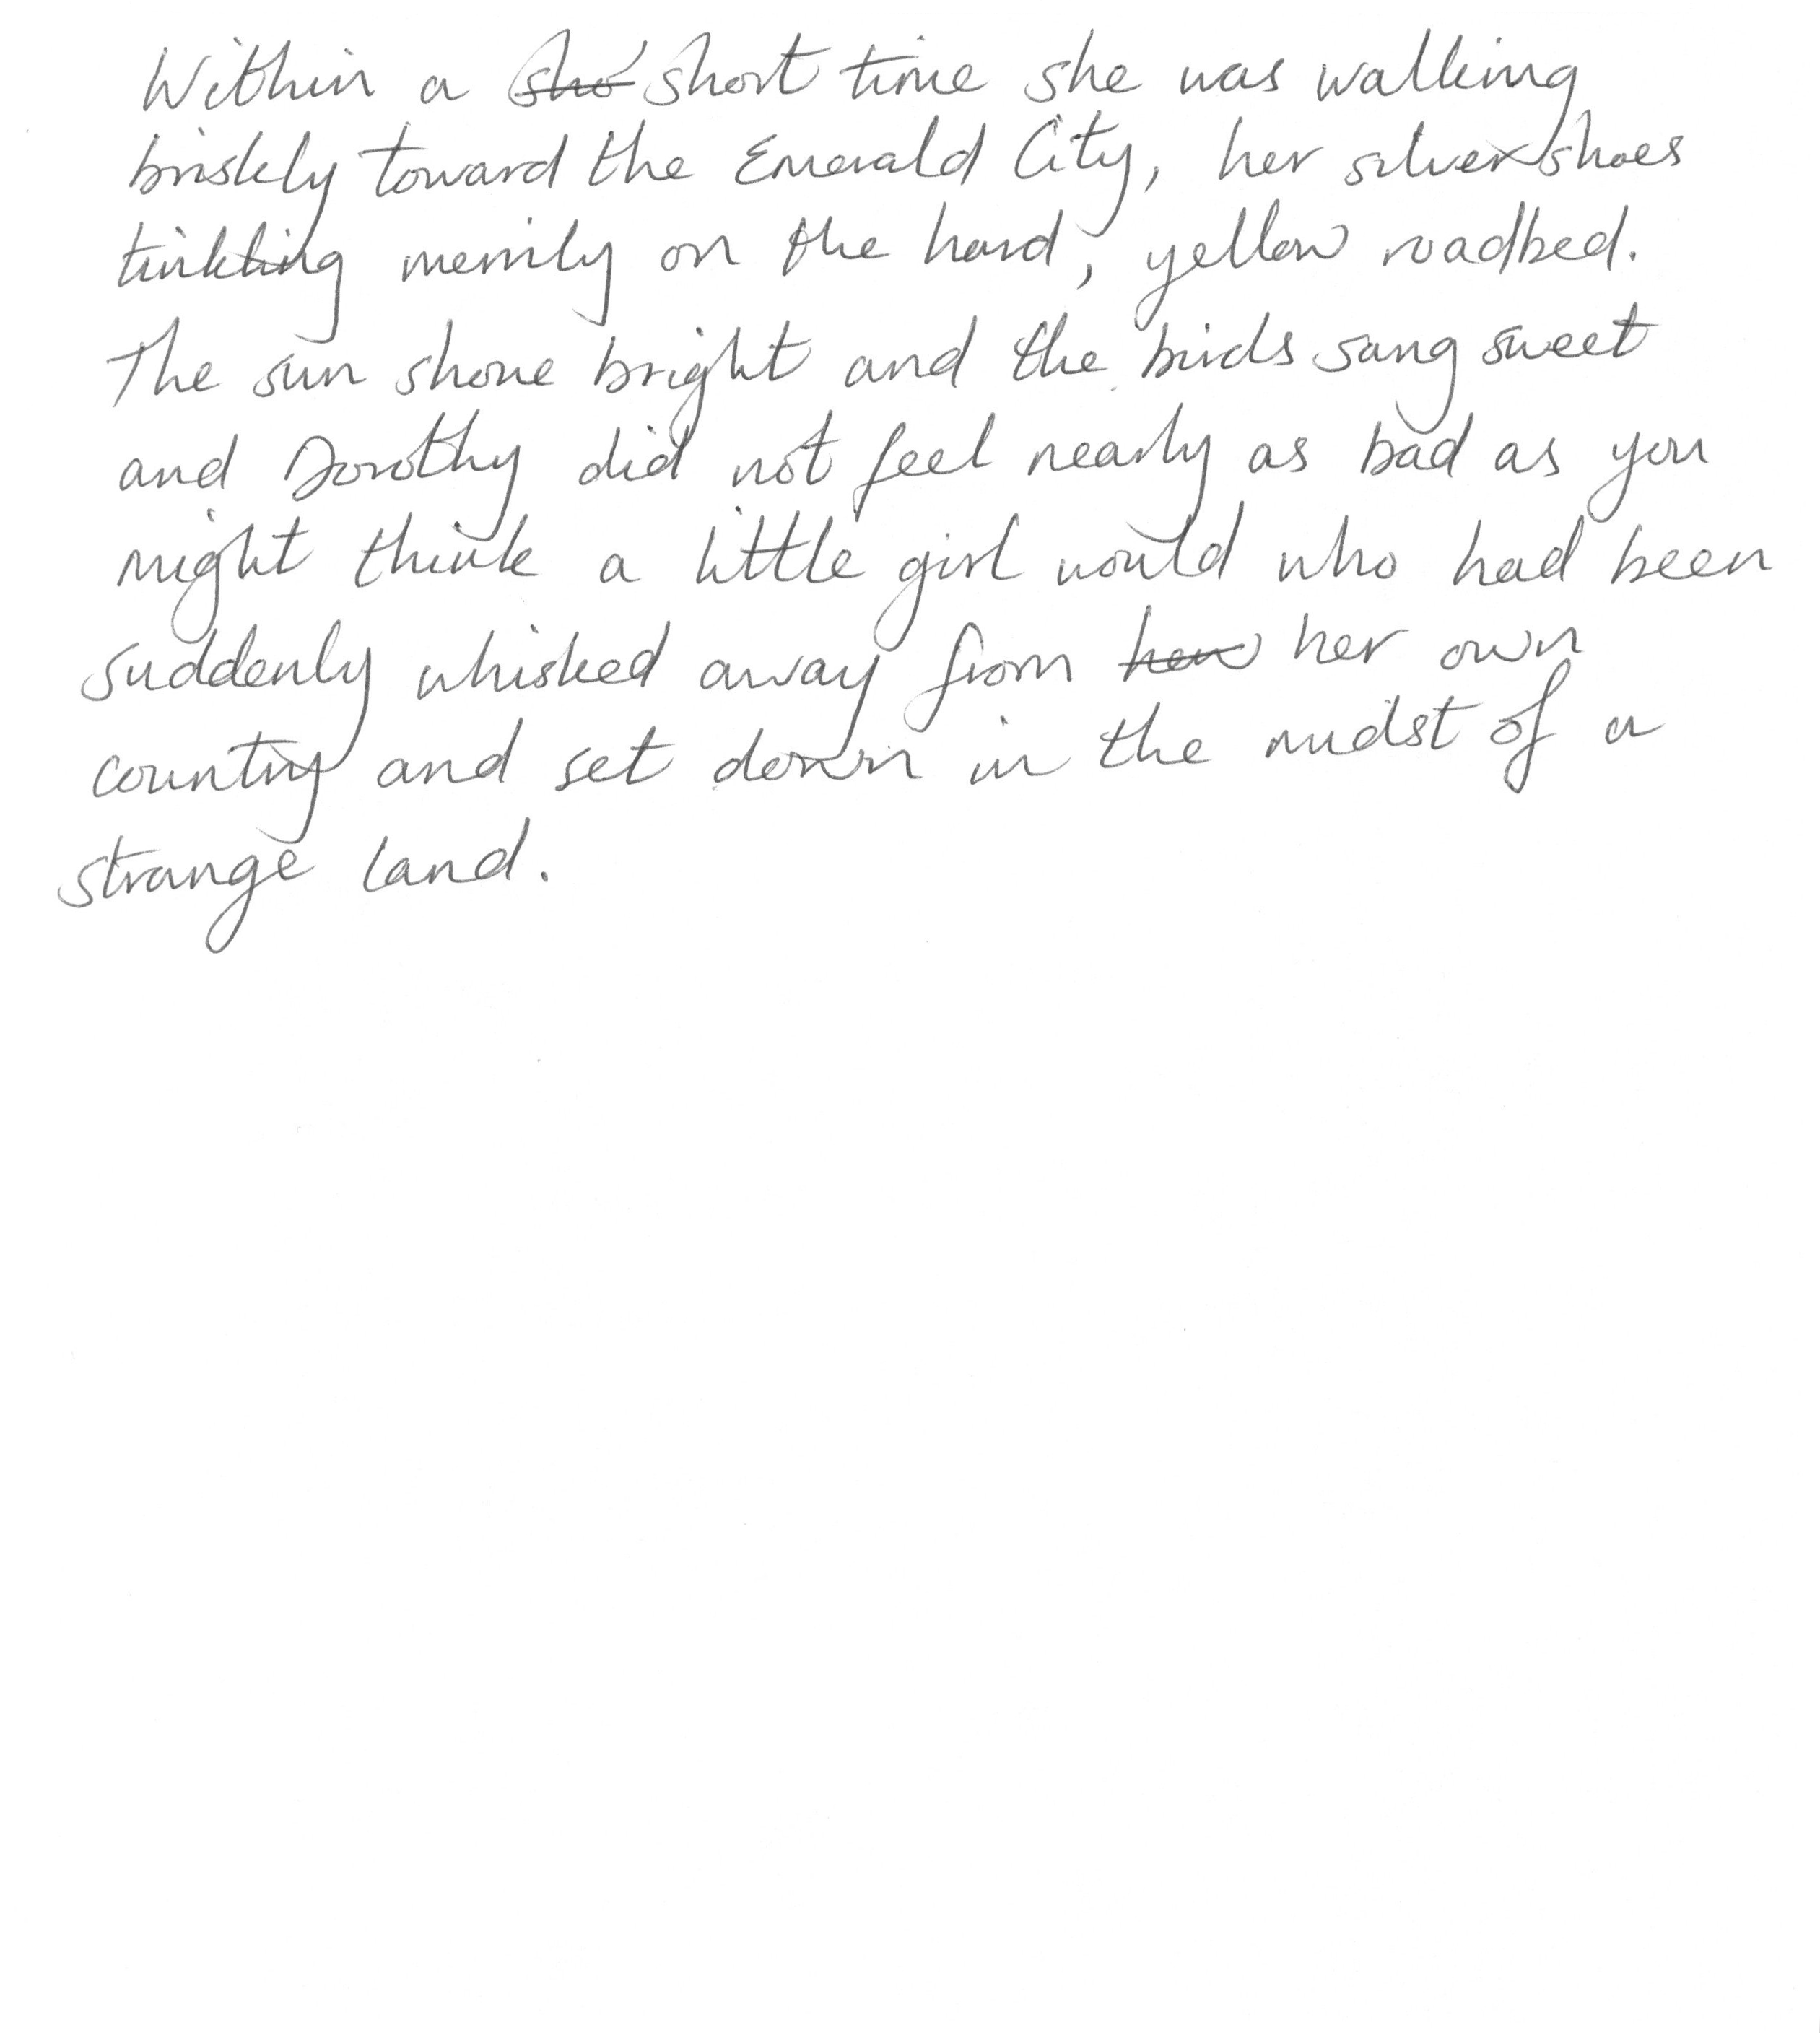 Within a sho short time she was walking
briskly toward the Emerald City, her silver shoes
tinkling merrily on the hard, yellow roadbed.
The sun shone bright and the birds sang sweet
and Dorothy did not feel nearly as bad as you
might think a little girl would who had been
suddenly whisked away from her own
country and set down in the midst of a
strange land.